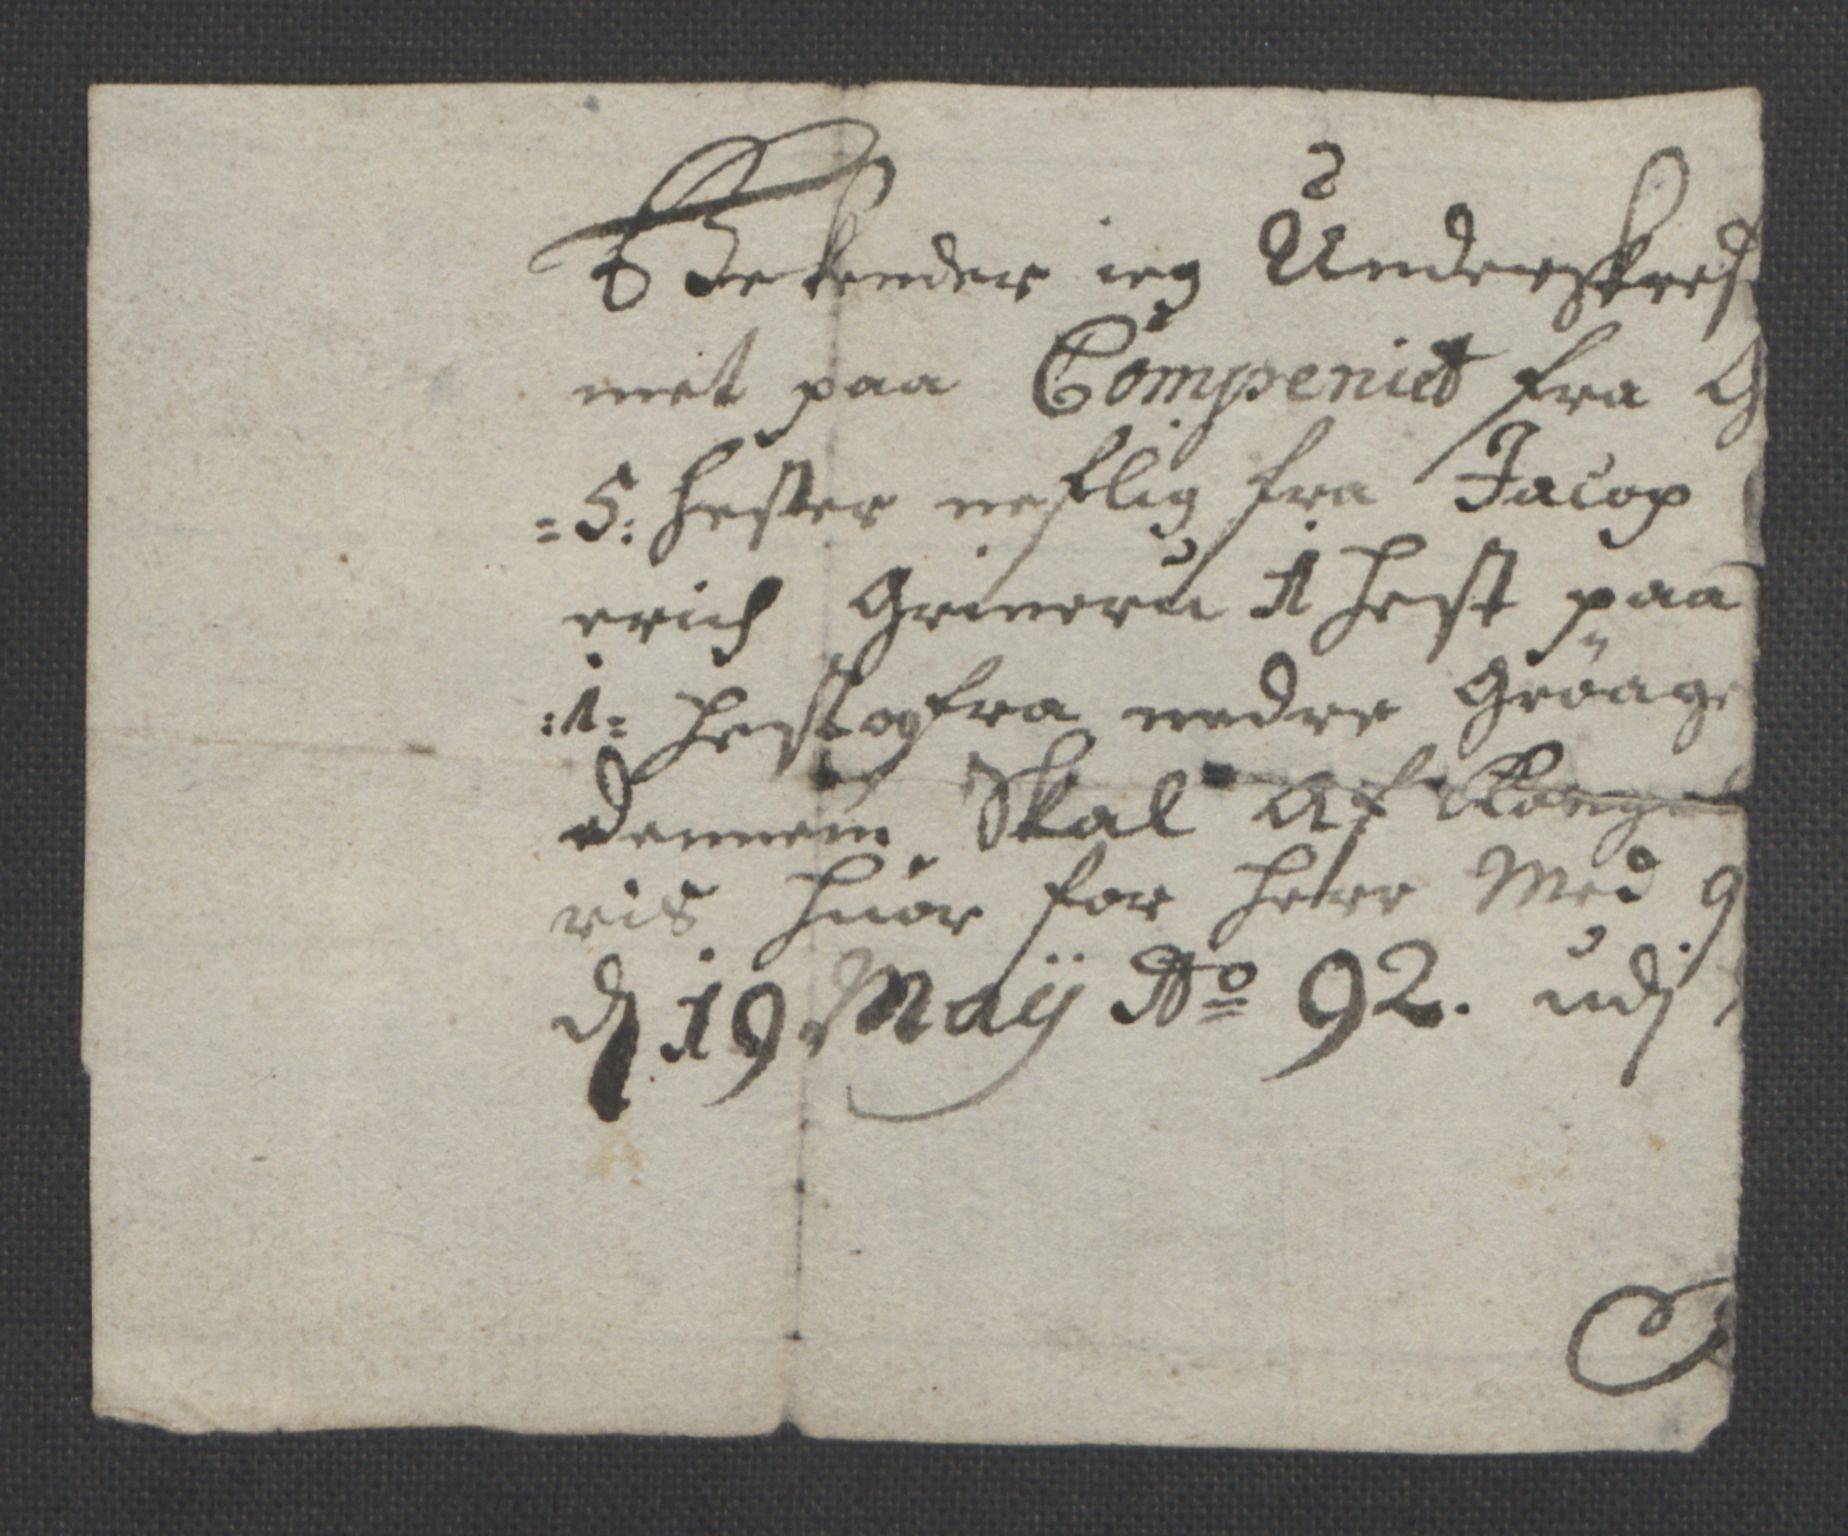 Bekender ieg Underskref
met paa Compeniet fra G
=5: hester neflig fra Jacop
erich Grineru 1 hest paa
:1= hest og fra nedre Gröag
dennem Skal Af
vis huor for herr Med g
d 19 Maij Ao 92. udj